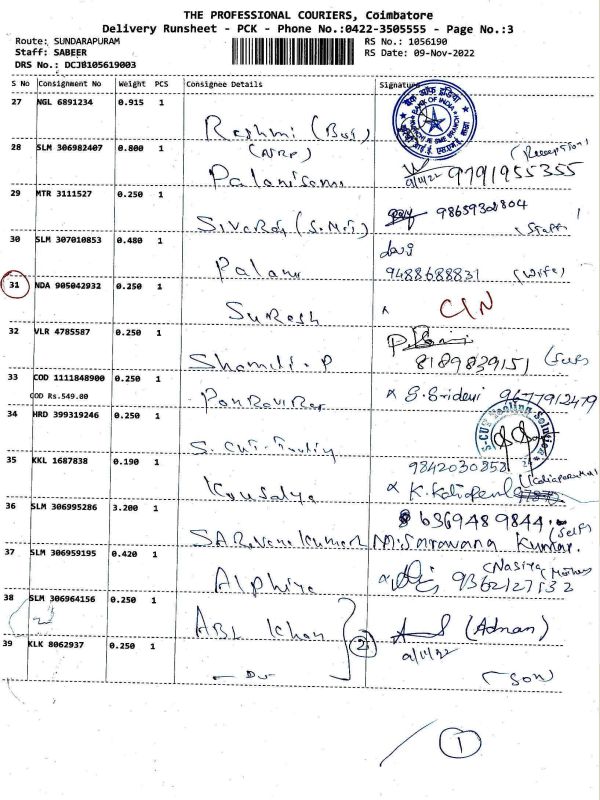 THE PROFESSIONAL COURIERS, Coimbatore
Delivery Runsheet - PCK - Phone No.:0422-3505555 - Page No.:3
Route: SUNDARAPURAM RS No.: 1056190
Staff: SABEER RS Date: 09-Nov-2022
DRS No.: DCJB105619003
S No Consignment No Weight PCS Consignee Details Signature
27 NGL 6891234 0.915 1
Reshmi
BANK OF INDIA
28 SLM 306982407 0.800 1
(Reception)
9/11/22 9791955355
29 MTR 3111527 0.250 1
98659308804
(Staff)
30 SLM 307010853 0.480 1
Palani
9488688831 (Wife)
31 NDA 905042932 0.250 1
Suresh x C/N
32 VLR 4785587 0.250 1
Shamili. P
8189839151 (Self)
33 COD 1111848900 0.250 1
COD Rs.549.00
x S. Sridevi 9677912479
34 HRD 399319246 0.250 1
9842030858
35 KKL 1687838 0.190 1
Kousalya
36 SLM 306995286 3.200 1
6369489844. (Self)
Saravana Kumar M. Sarawana Kumar.
37 SLM 306959195 0.420 1
Alphiya (Nasiya (Mother)
9362127132
38 SLM 306964156 0.250 1
ABL Khan (Adnan)
2
9/11/22
39 KLK 8062937 0.250 1
- Do -
(SON
1